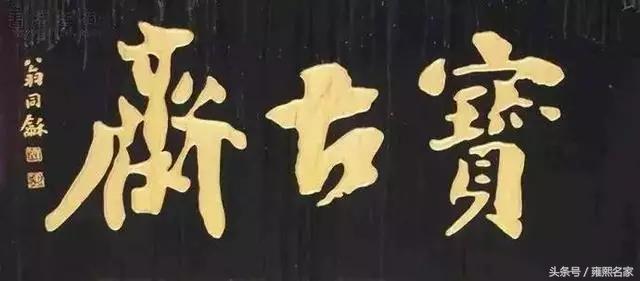 寶古齋
翁同龢
头条号/雍熙名家